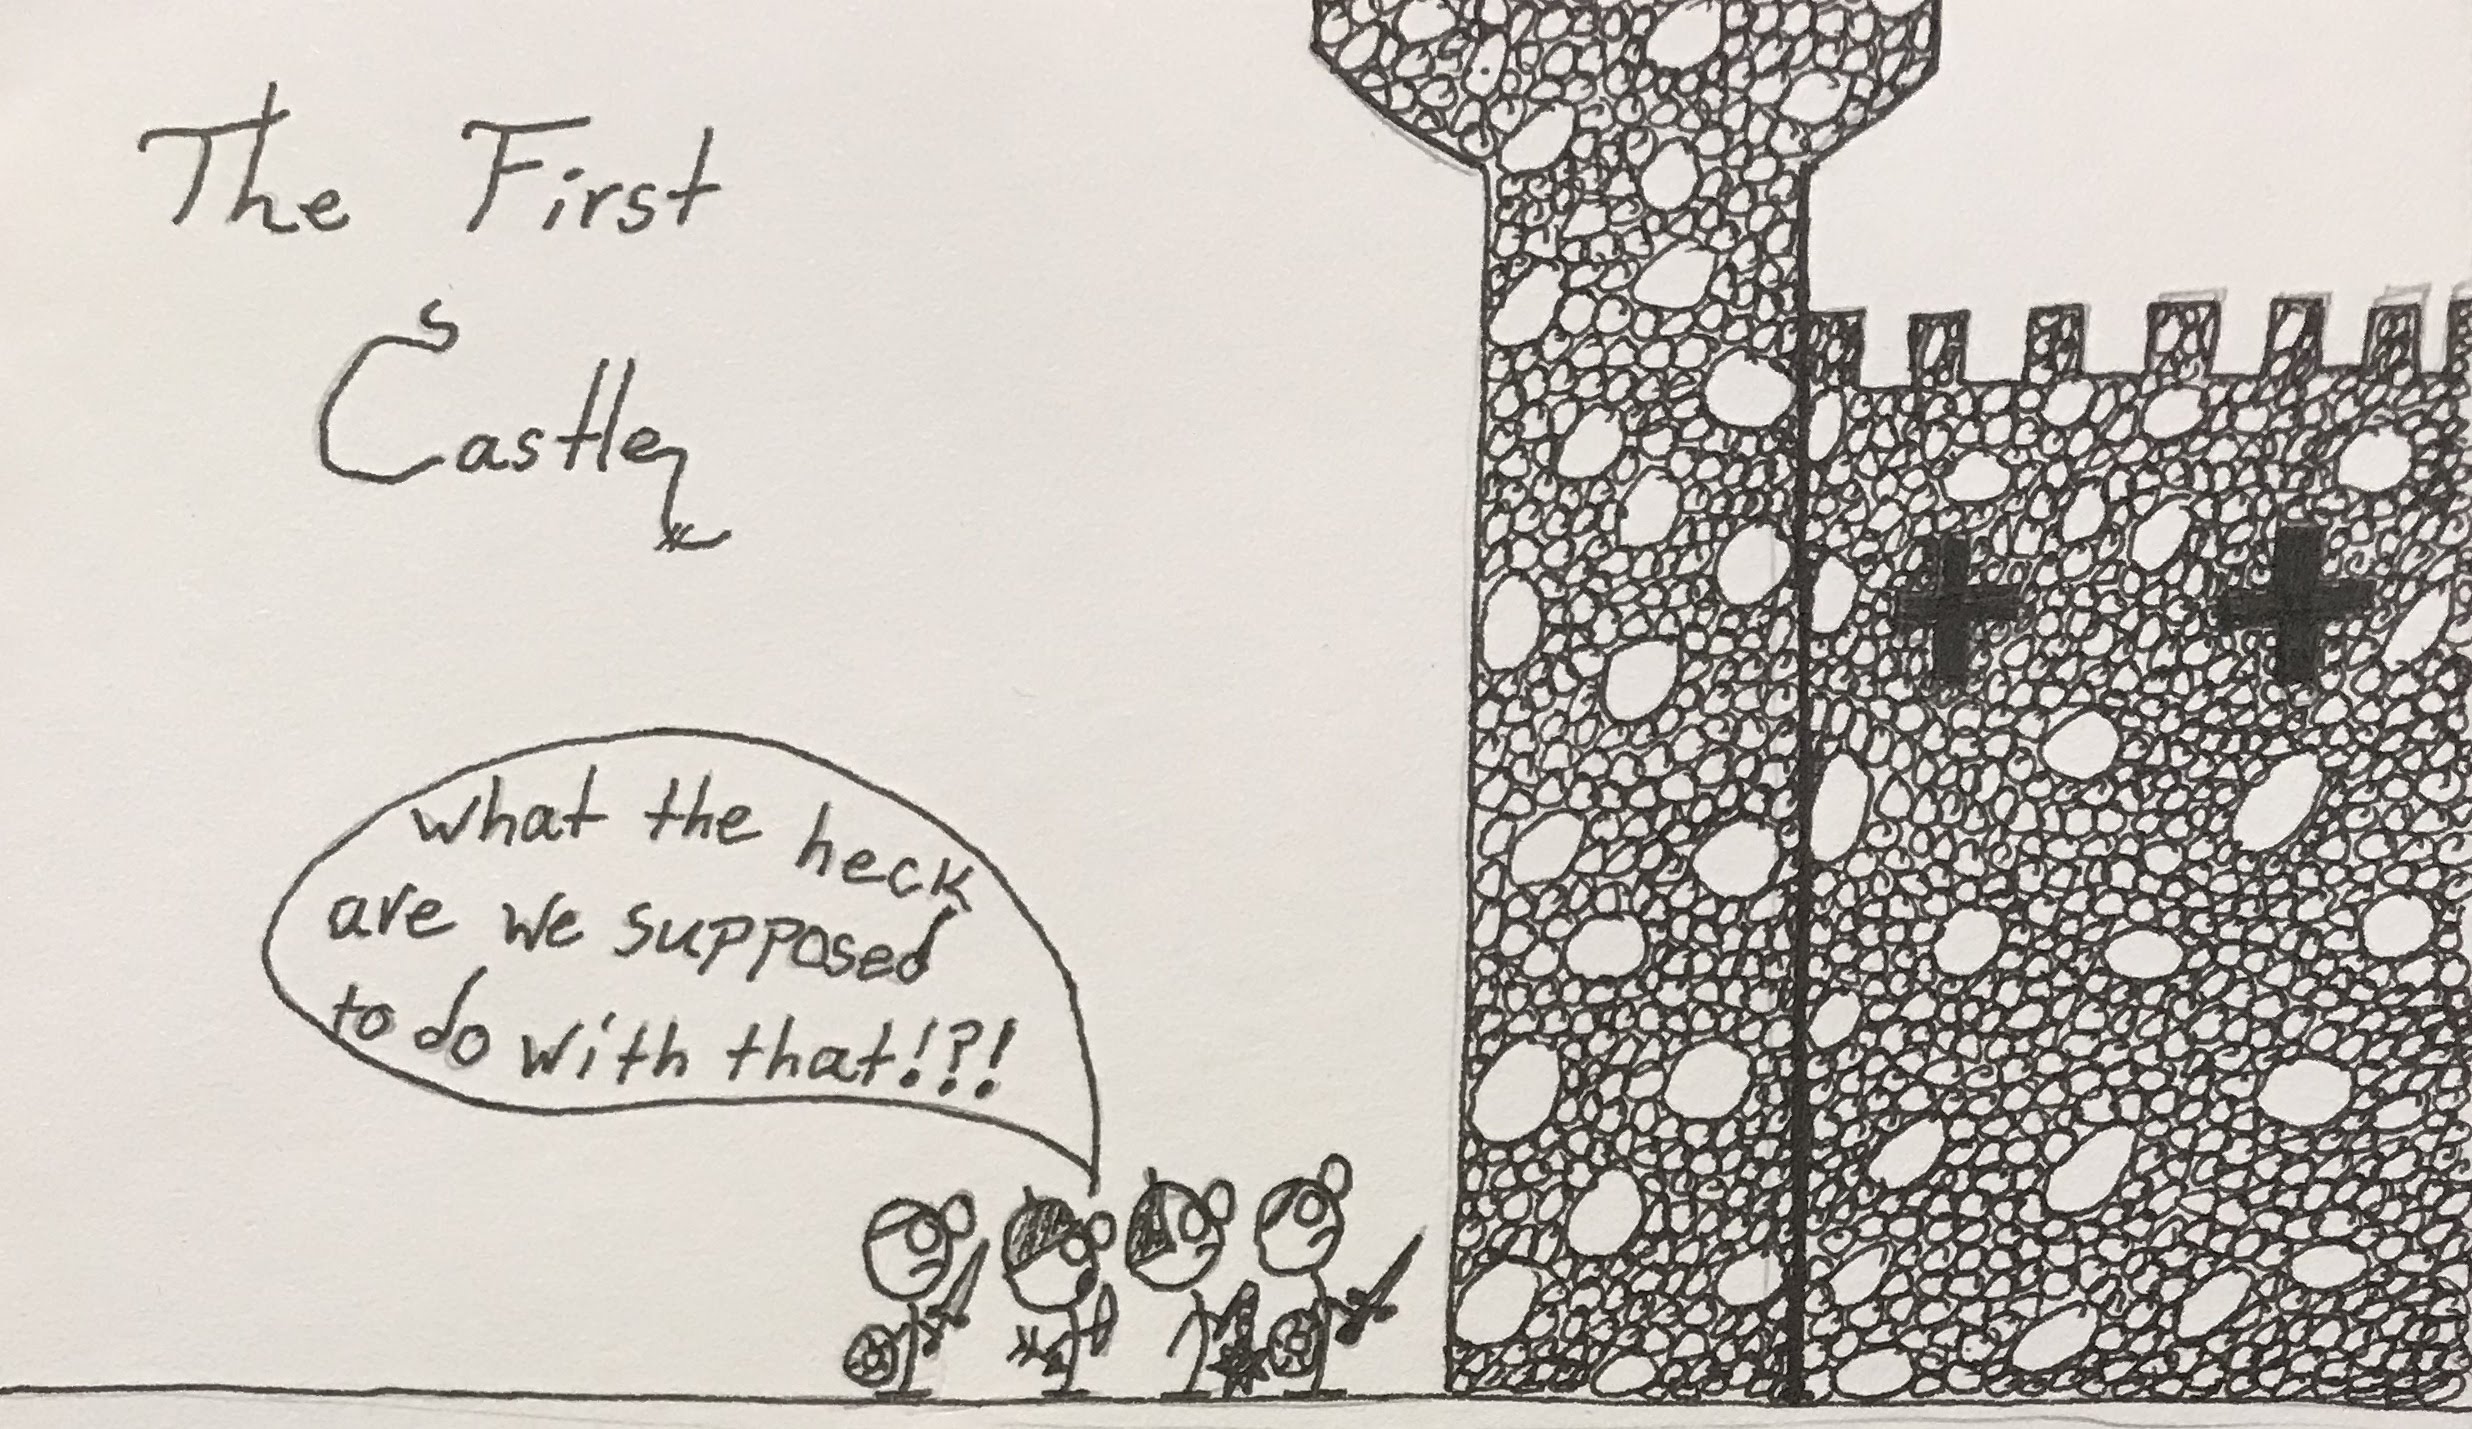 The First
Castle
What the heck
are we supposed
to do with that!?!